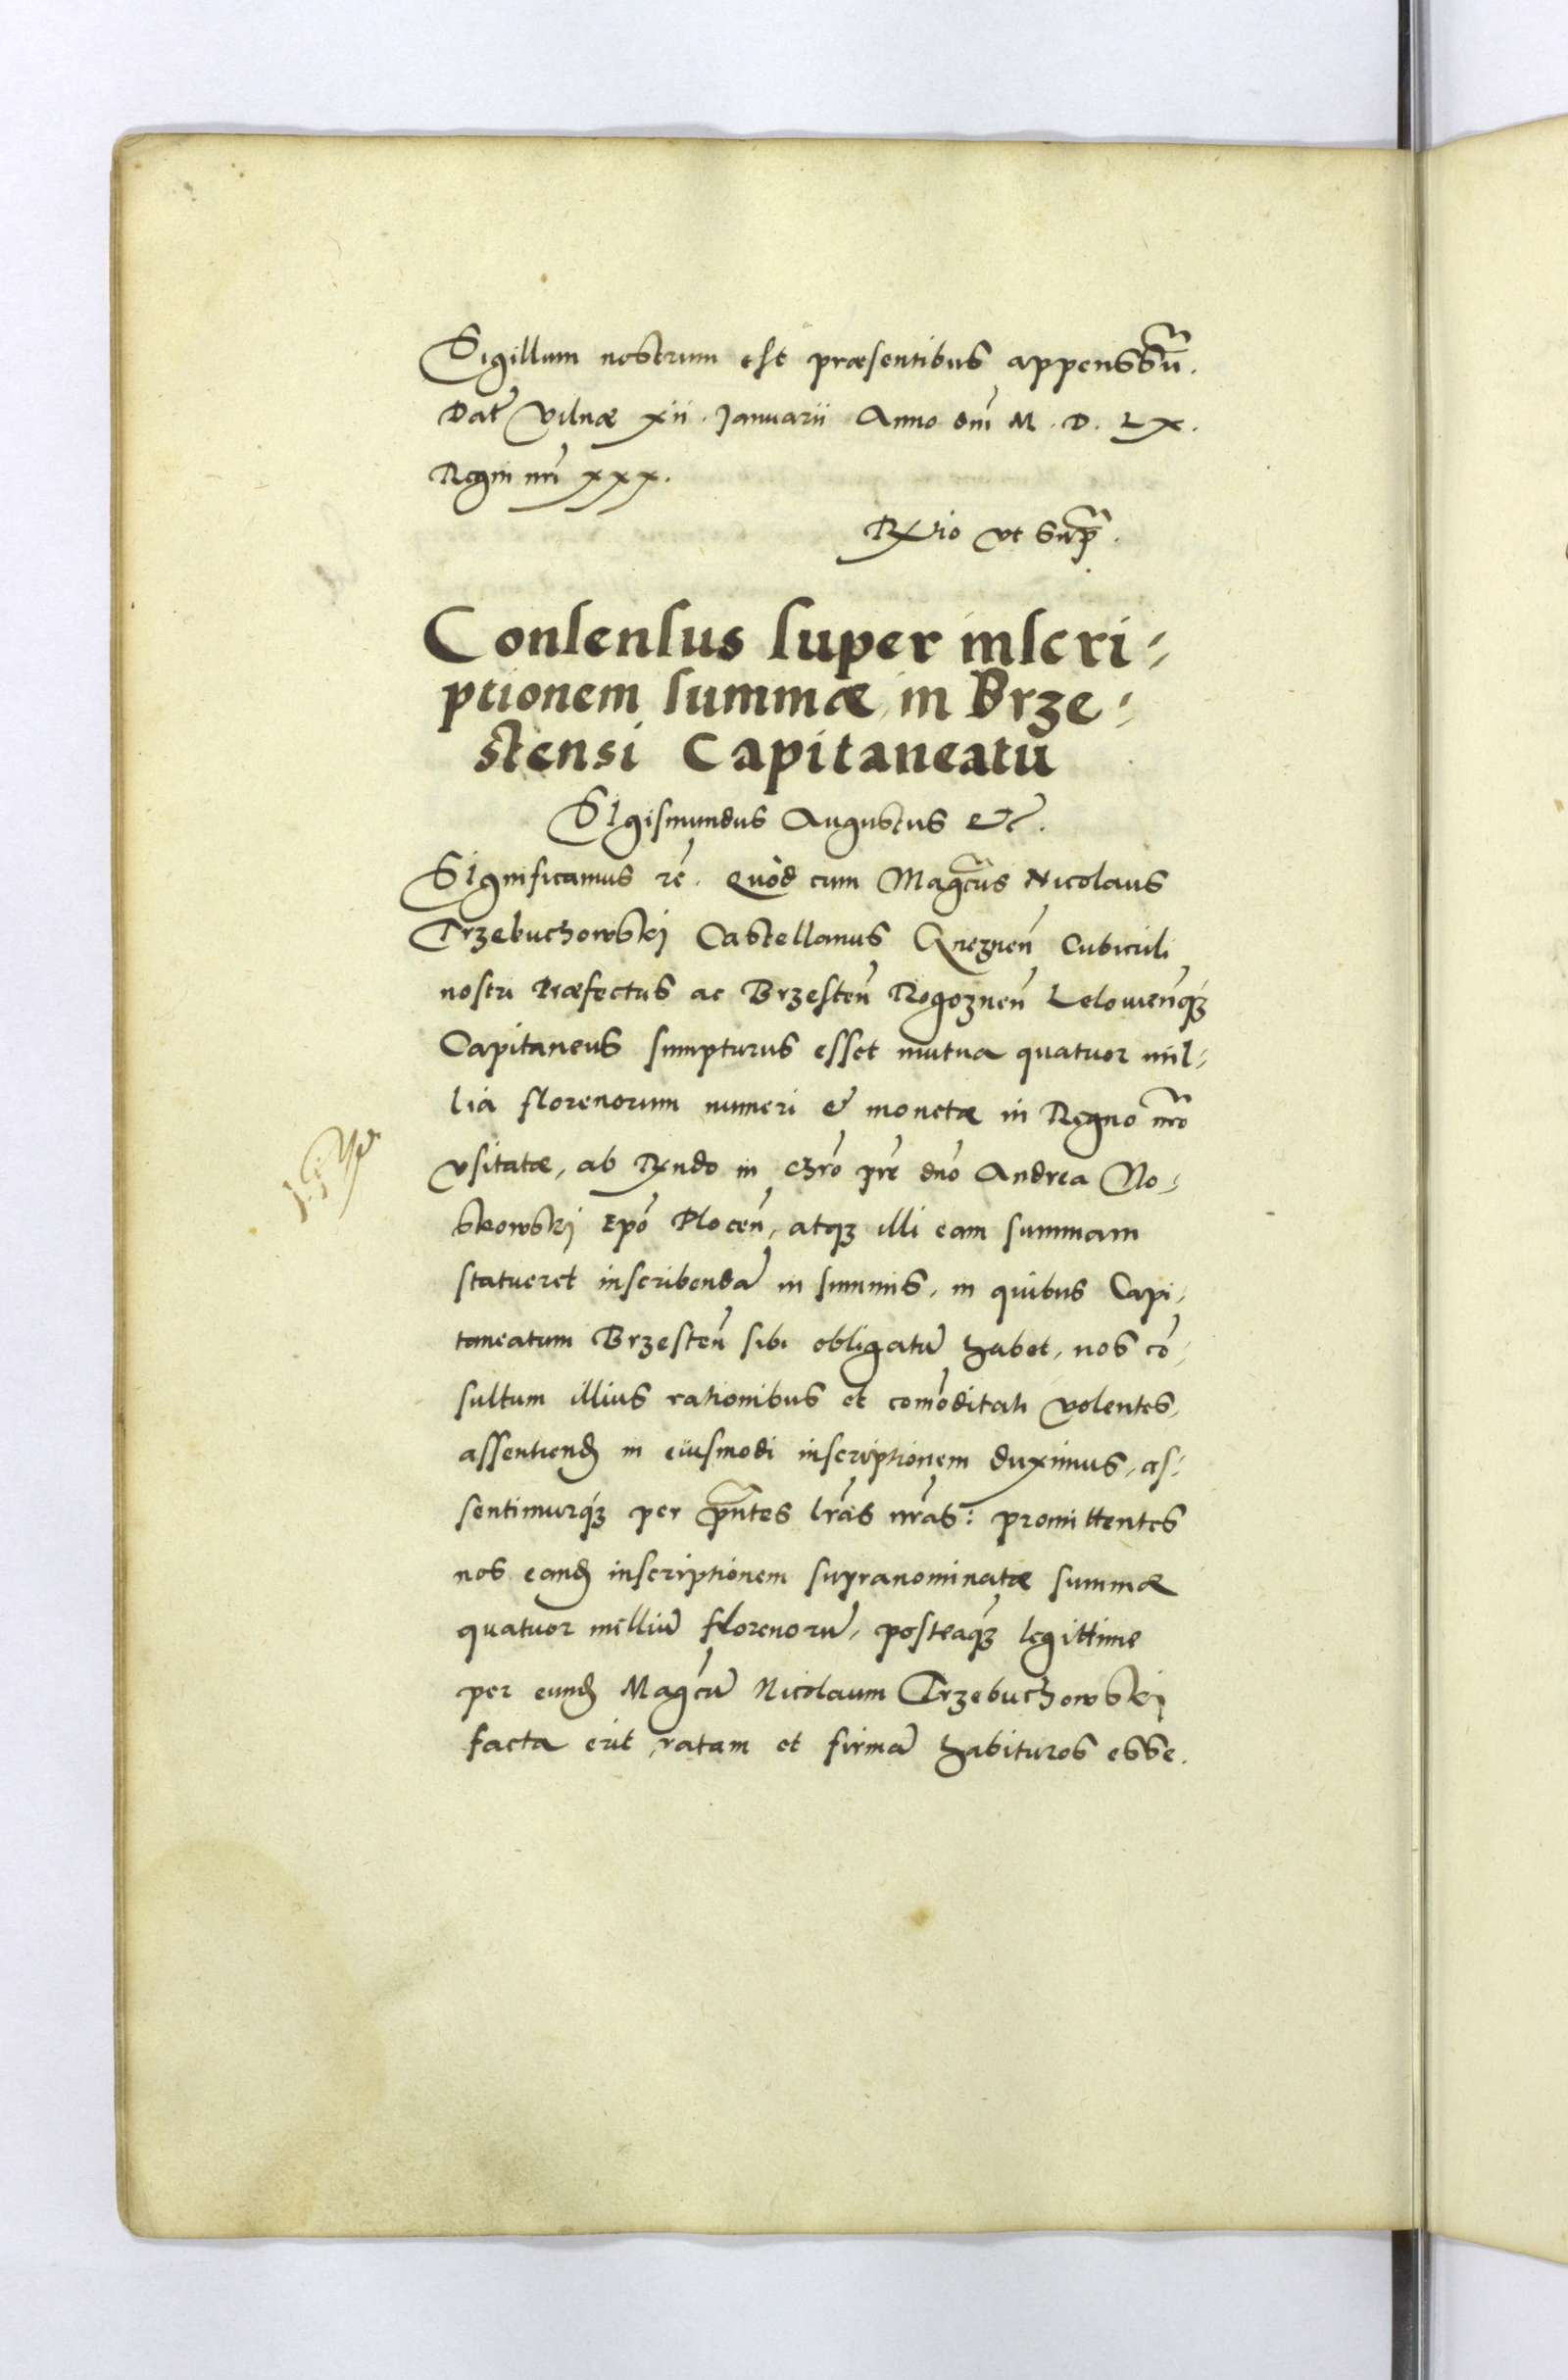 Sigillum nostrum est præsentibus appenssũ.
Dat̃ Vilnæ xii. Januarii Anno dñi M. D. LX.
Regni nr̃i xxx.
Rl̃tio vt sup̃.
Consensus super inscri-
ptionem summæ in Brze-
stensi Capitaneatu
SIgismundus Augustus &c̃.
SIgnificamus &c̃. Quòd cum Mag̃cus Nicolaus
Trzebuchowskj Castellanus Gneznen̄ Cubiculi
nostri Præfectus ac Brzesten̄ Rogoznen̄ Lelovien̄q₃
Capitaneus sumpturus esset mutua quatuor mil-
lia florenorum numeri & monetæ in Regno nr̃o
vsitatæ, ab Rñdo in Chr̃o pr̃e dn̄o Andrea No-
skowskj Ep̄o Plocen̄, atq₃ illi eam summam
statueret inscribendā in summis, in quibus Capi-
taneatum Brzesten̄ sibi obligatū habet, nos cō-
sultum illius rationibus et com̄oditati volentes,
assentiend̄ in eiusmodi inscriptionem duximus, as-
sentimurq₃ per p̃ntes lr̃as nr̃as: promittentes
nos eand̄ inscriptionem supranominatæ summæ
quatuor milliū florenorū, posteaq₃ legittime
per eund̄ Mag̃cū Nicolaum Trzebuchowskj
facta erit, ratam et firmā habituros esse.